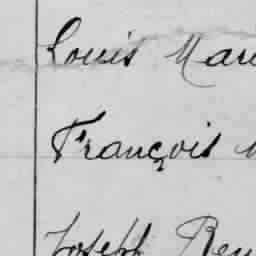 Louis Mar
François
Joseph Rey